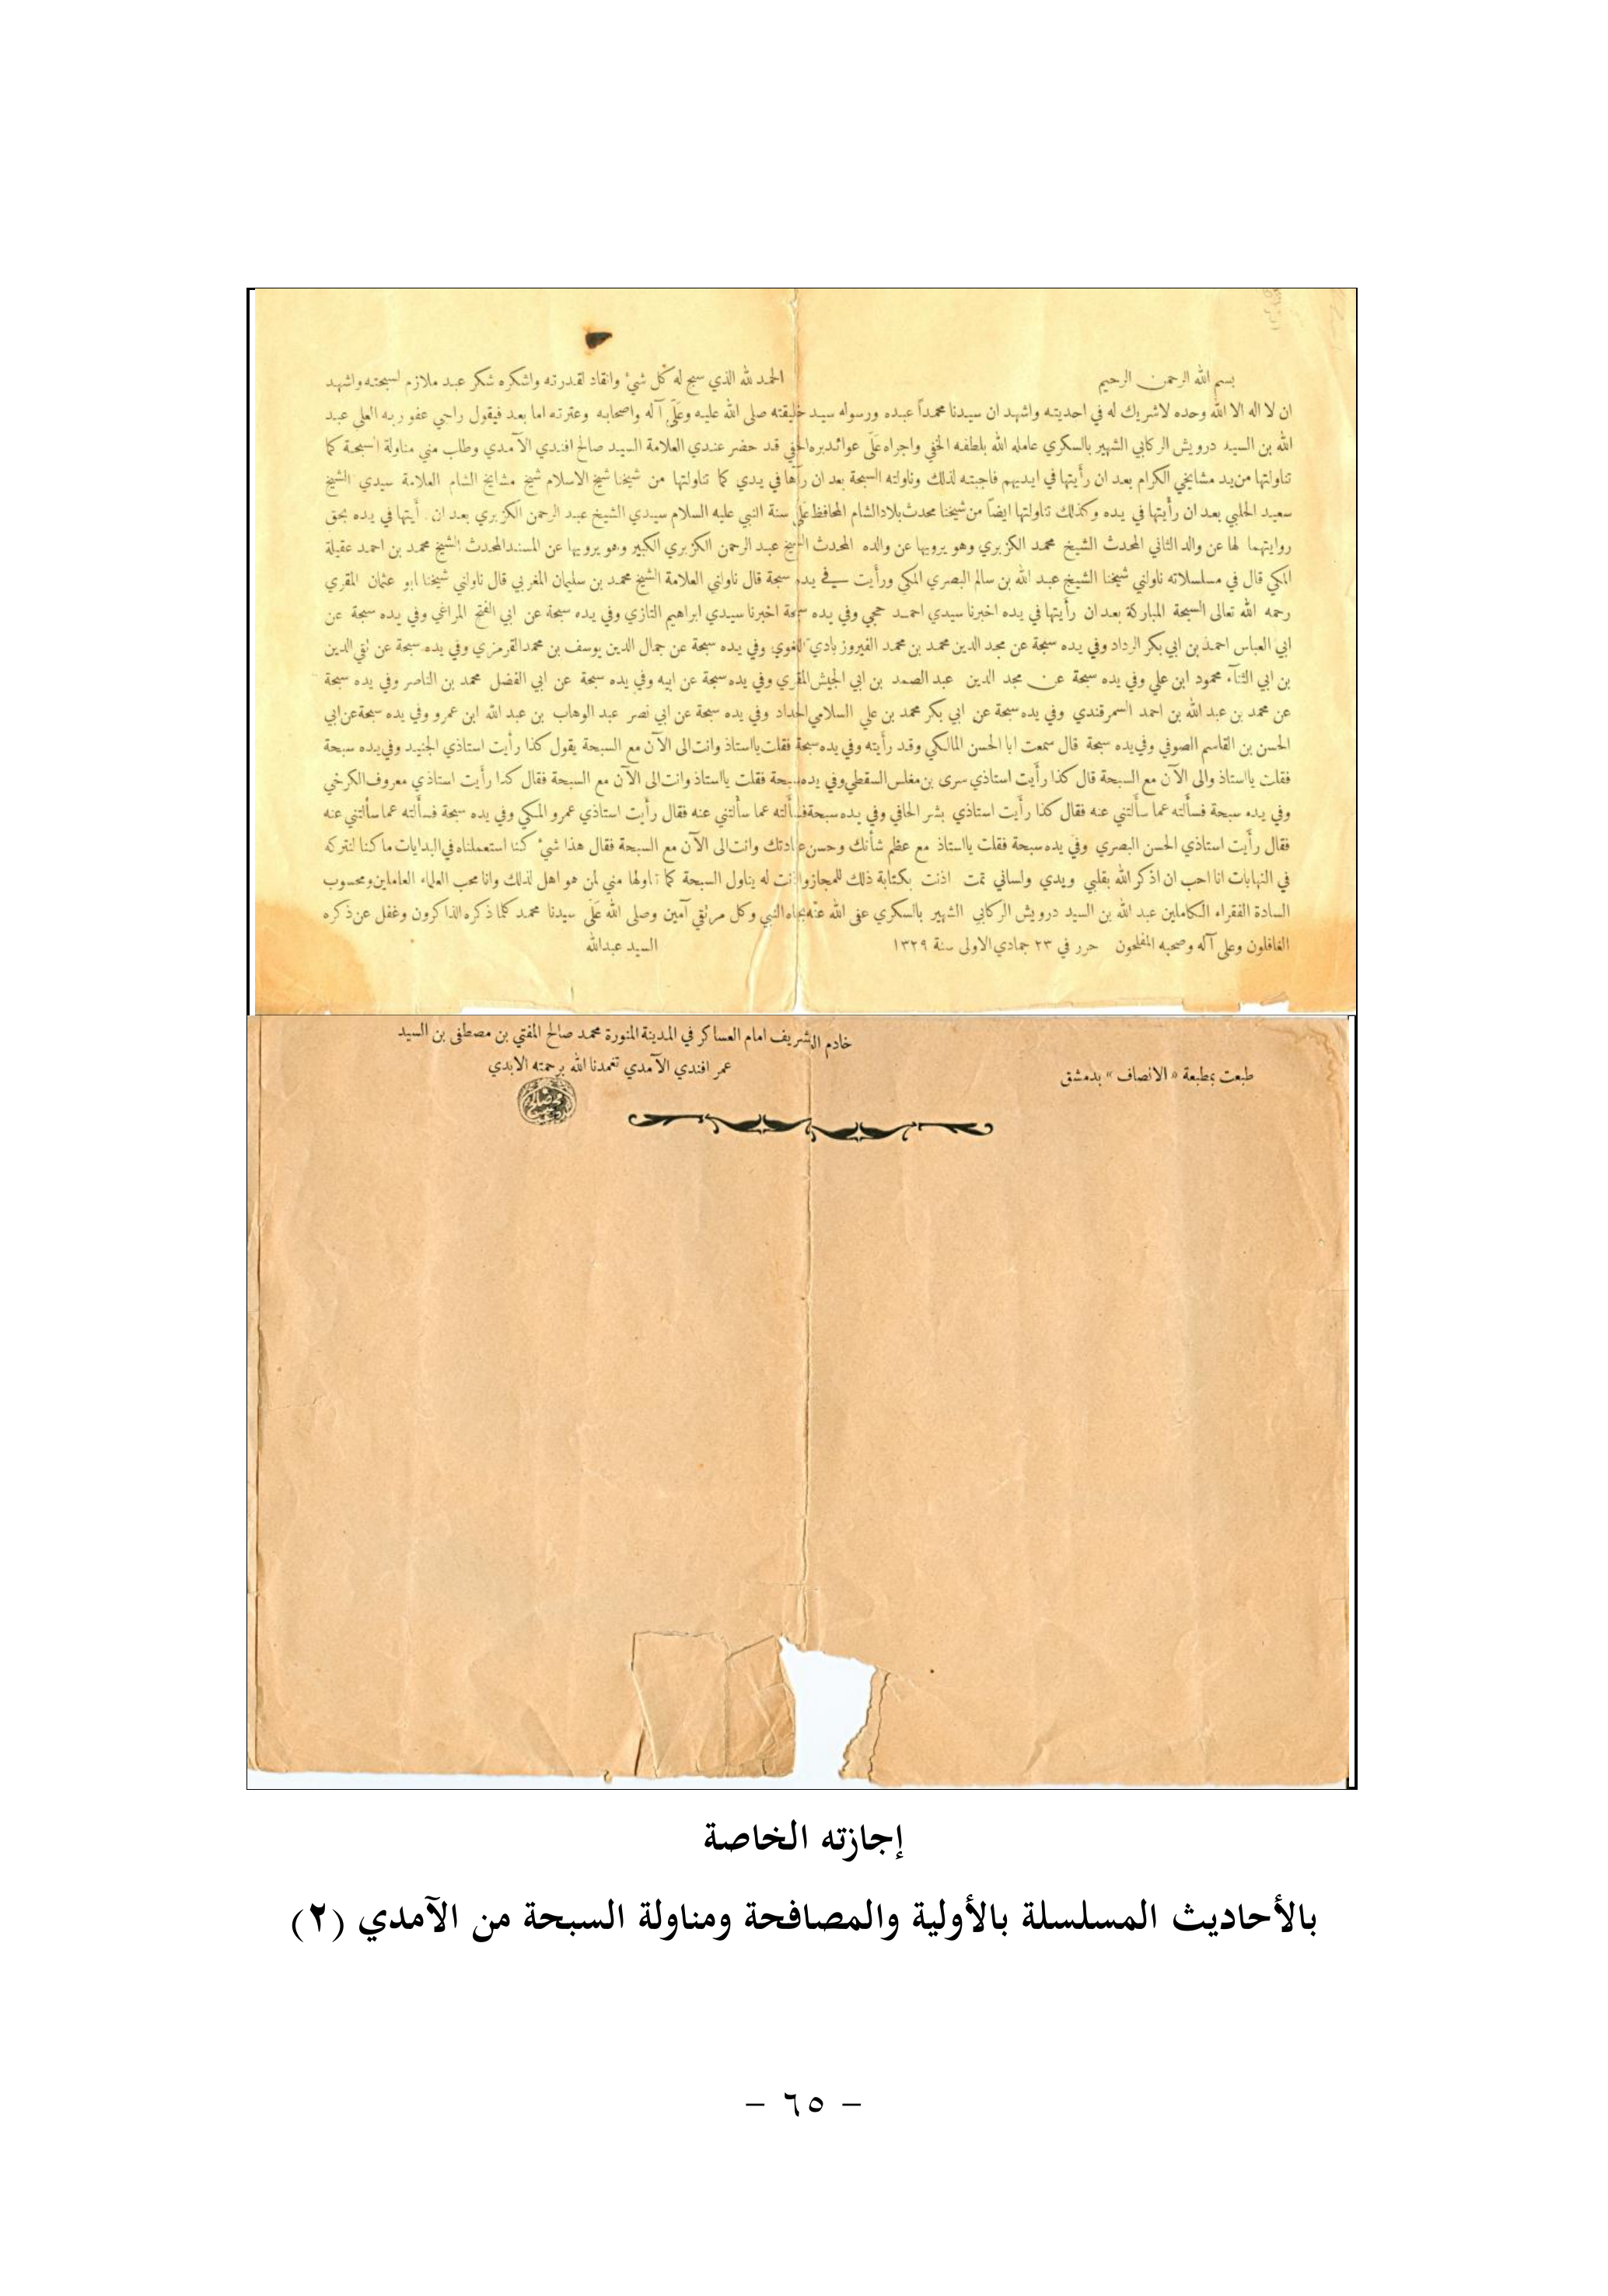 بسم الله الرحمن الرحيم الحمد لله الذي سبح له كل شيء وانقاد لقدرته واشكره شكر عبد ملازم لسبحته واشهد
ان لا اله الا الله وحده لاشريك له في احديته واشهد ان سيدنا محمداً عبده ورسوله سيد خليقته صلى الله عليه وعلى آله واصحابه وعترته اما بعد فيقول راجي عفو ربه العلي عبد
الله بن السيد درويش الركابي الشهير بالسكري عامله الله بلطفه الخفي واجراه على عوائد بره الحفي قد حضر عندي العلامة السيد صالح افندي الآمدي وطلب مني مناولة السبحة كما
تناولتها من يد مشايخي الكرام بعد ان رأيتها في ايديهم فاجبته لذلك وناولته السبحة بعد ان رآها في يدي كما تناولتها من شيخنا شيخ الاسلام شيخ مشايخ الشام العلامة سيدي الشيخ
سعيد الحلبي بعد ان رأيتها في يده وكذلك تناولتها ايضاً من شيخنا محدث بلاد الشام المحافظ على سنة النبي عليه السلام سيدي الشيخ عبد الرحمن الكزبري بعد ان رأيتها في يده بحق
روايتهما لها عن والد الثاني المحدث الشيخ محمد الكزبري وهو يرويها عن والده المحدث الشيخ عبد الرحمن الكزبري الكبير وهو يرويها عن المسند المحدث الشيخ محمد بن احمد عقيلة
المكي قال في مسلسلاته ناولني شيخنا الشيخ عبد الله بن سالم البصري المكي ورأيت في يده سبحة قال ناولني العلامة الشيخ محمد بن سليمان المغربي قال ناولني شيخنا ابو عثمان المقري
رحمه الله تعالى السبحة المباركة بعد ان رأيتها في يده اخبرنا سيدي احمد حجي وفي يده سبحة اخبرنا سيدي ابراهيم التازي وفي يده سبحة عن ابي الفتح المراغي وفي يده سبحة عن
ابي العباس احمد بن ابي بكر الرداد وفي يده سبحة عن مجد الدين محمد بن محمد الفيروز بادي اللغوي وفي يده سبحة عن جمال الدين يوسف بن محمد القرمزي وفي يده سبحة عن تقي الدين
بن ابي الثنآء محمود ابن علي وفي يده سبحة عن مجد الدين عبد الصمد بن ابي الجيش المقري وفي يده سبحة عن ابيه وفي يده سبحة عن ابي الفضل محمد بن الناصر وفي يده سبحة
عن محمد بن عبد الله بن احمد السمرقندي وفي يده سبحة عن ابي بكر محمد بن علي السلامي الحداد وفي يده سبحة عن ابي نصر عبد الوهاب بن عبد الله ابن عمرو وفي يده سبحة عن ابي
الحسن بن القاسم الصوفي وفي يده سبحة قال سمعت ابا الحسن المالكي وقد رأيته وفي يده سبحة فقلت يا استاذ وانت الى الآن مع السبحة يقول كذا رأيت استاذي الجنيد وفي يده سبحة
فقلت يا استاذ والى الآن مع السبحة قال كذا رأيت استاذي سرى بن مغلس السقطي وفي يده سبحة فقلت يا استاذ وانت الى الآن مع السبحة فقال كذا رأيت استاذي معروف الكرخي
وفي يده سبحة فسألته عما سألتني عنه فقال كذا رأيت استاذي بشر الحافي وفي يده سبحة فسألته عما سألتني عنه فقال رأيت استاذي عمرو المكي وفي يده سبحة فسألته عما سألتني عنه
فقال رأيت استاذي الحسن البصري وفي يده سبحة فقلت يا استاذ مع عظم شأنك وحسن عبادتك وانت الى الآن مع السبحة فقال هذا شيء كنا استعملناه في البدايات ما كنا لنتركه
في النهايات انا احب ان اذكر الله بقلبي ويدي ولساني تمت اذنت بكتابة ذلك للمجاز واذنت له يناول السبحة كما ناولها مني لمن هو اهل لذلك وانا محب العلماء العاملين ومحسوب
السادة الفقراء الكاملين عبد الله بن السيد درويش الركابي الشهير بالسكري عفى الله عنه بجاه النبي وكل مرتقي آمين وصلى الله على سيدنا محمد كلما ذكره الذاكرون وغفل عن ذكره
الغافلون وعلى آله وصحبه المفلحون حرر في ٢٣ جمادي الاولى سنة ١٣٢٩ السيد عبدالله
خادم الشريف امام العساكر في المدينة المنورة محمد صالح المفتي بن مصطفى بن السيد
عمر افندي الآمدي تغمدنا الله برحمته الابدي
طبعت بمطبعة «الانصاف» بدمشق
إجازته الخاصة
بالأحاديث المسلسلة بالأولية والمصافحة ومناولة السبحة من الآمدي (٢)
– ٦٥ –